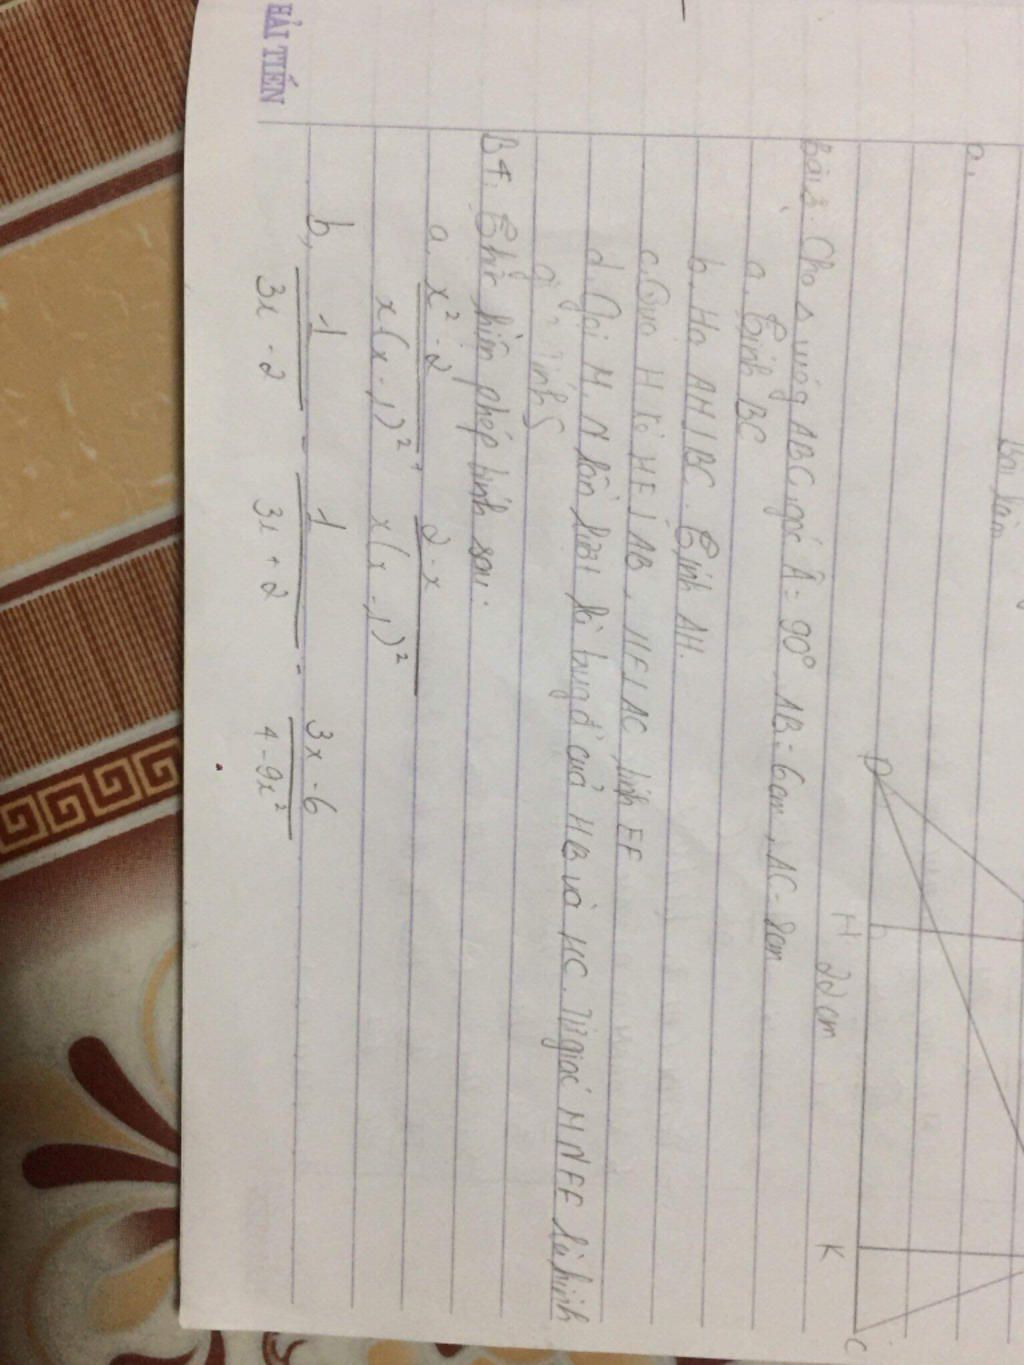 HẢI TIẾN
a.
Bài làm
D
H
22cm
K
C
Bài 3. Cho Δ vuông ABC, góc Â = 90° AB = 6cm, AC = 8cm
a. Tính BC
b. Hạ AH ⊥ BC. Tính AH.
c. Qua H kẻ HE ⊥ AB, HF ⊥ AC, tính EF
d. Gọi M, N lần lượt là trung đ của HB và HC. Tứ giác MNFE là hình
gì, Tính S
B4. Thực hiện phép tính sau:
a. x² - 2 / x(x - 1)² + 2 - x / x(x - 1)²
b, 1 / 3x - 2 - 1 / 3x + 2 - 3x - 6 / 4 - 9x²